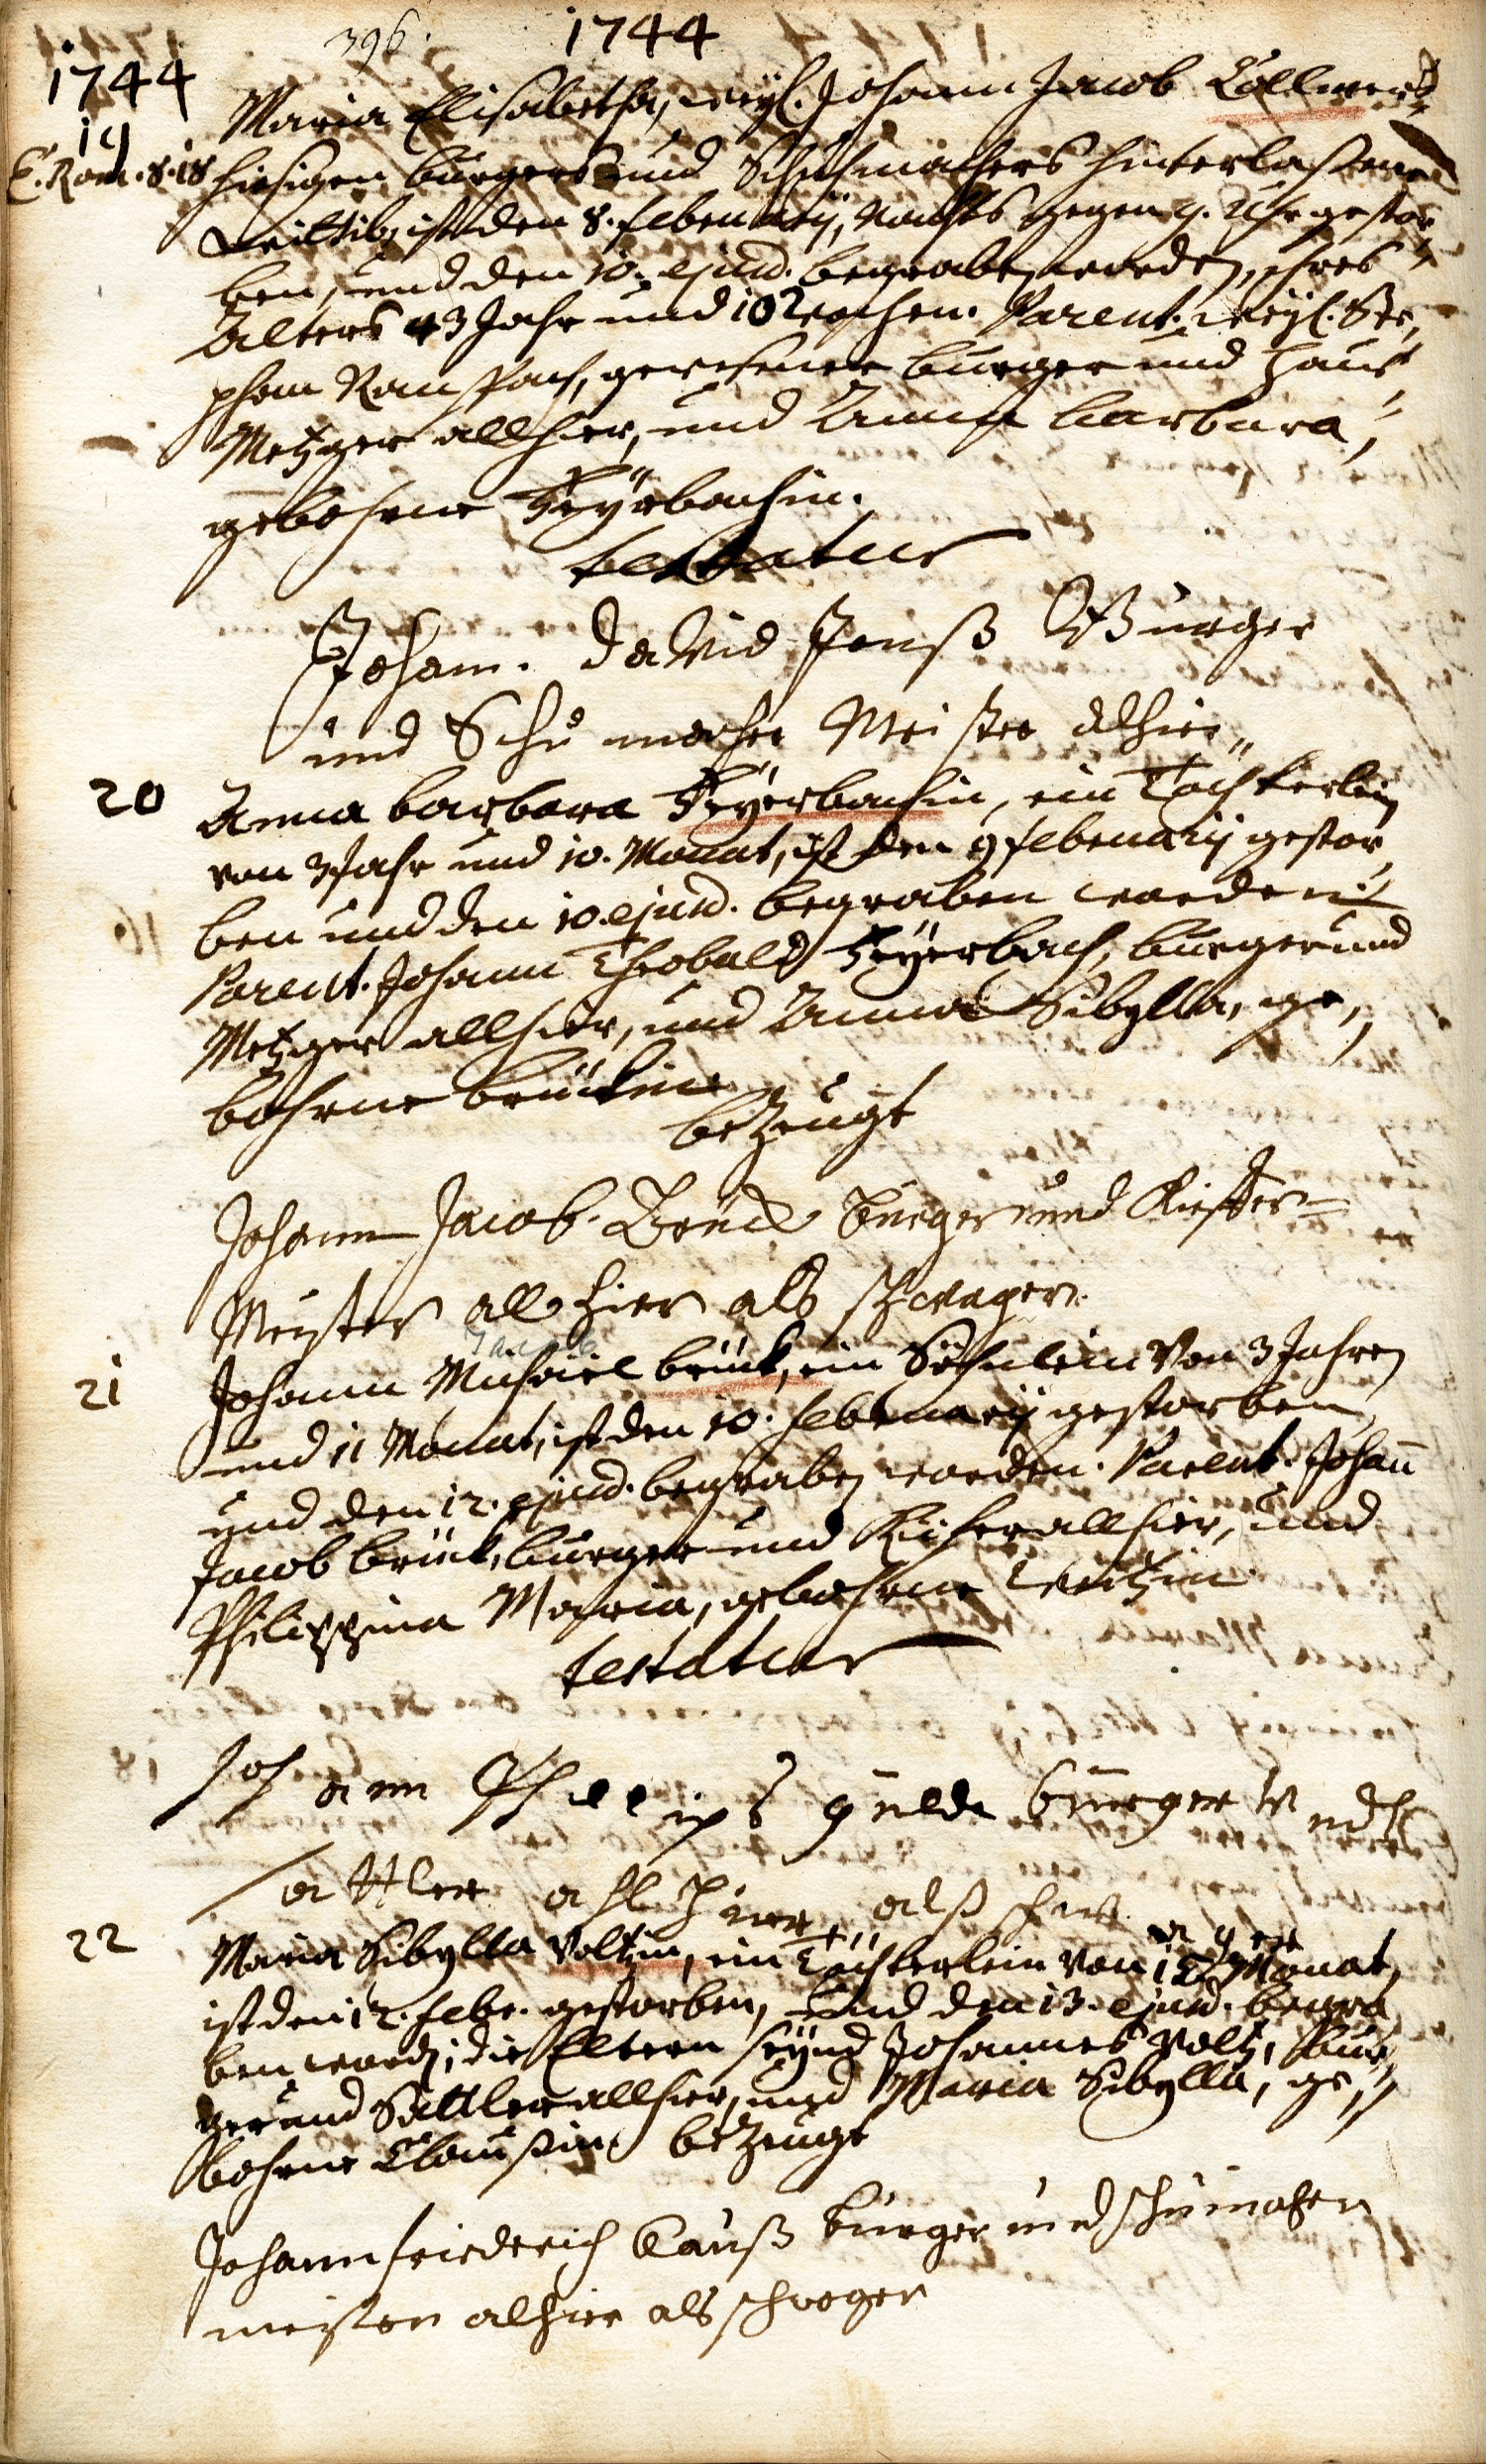 396.
1744
1744
19
E. Rom. 8.18
Maria Elisabetha, weyl. Johann Jacob Collmers
hiesigen burgers und Schuhmachers hinterlaßene
Wittib, ist den 8. februarij, Nachts gegen 9. Uhr gestor,,
ben, und den 10. ejusd. begraben worden, ihres
Alters 43 Jahr und 10 Wochen. Parent. weyl. Ste,,
phan Ranspach, gewesener burger und
Metzger allhier, und Anna barbara,
gebohrne Feyrbachin.
testatur
Johan. david Burger
und Schumacher Meister alhier
20
Anna barbara Feyerbachin, ein Töchterlein
von 3 Jahr und 10. Monat, ist den 9 februarij gestor,,
ben und den 10. ejusd. begraben worden.
Parent. Johann Theobald Feyerbach, burger und
Metzger allhier, und Anna Sibylla, ge,,
bohrne brückin
beZeugt
Johann Jacob Brück burger und Kieffer-
Meister allhier als schwager.
21
Jacob
Johann Michael brück, ein Söhnlein von 3 Jahren
und 11 Monat, ist den 10. februarij gestorben
und den 12. ejusd. begraben worden. Parent. Johan̄
Jacob brück, burger und Kiefer allhier, und
Philippina Maria, gebohrne
testatur
Johann Phillips burger und
sattler ahlhier alß schwager
22
Maria Sibylla Voltzin, ein Töchterlein von Monat,
ist den 12. febr. gestorben, und den 13. ejusd. begra
ben word; die Eltern seynd Johannes Voltz, bur,,
ger und Sattler allhier, und Maria Sibylla, ge,,
bohrne Claußin beZeugt
Johann friederich Clauß burger und schumacher
meister alhier als schwoger